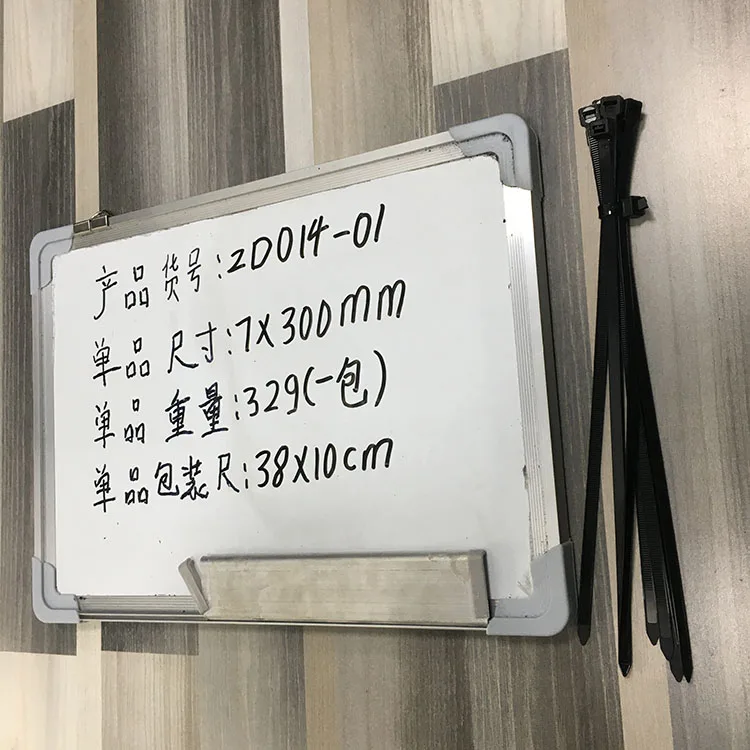 产品货号:ZD014-01
单品尺寸:7X300mm
单品重量:329(一包)
单品包装尺:38X10cm